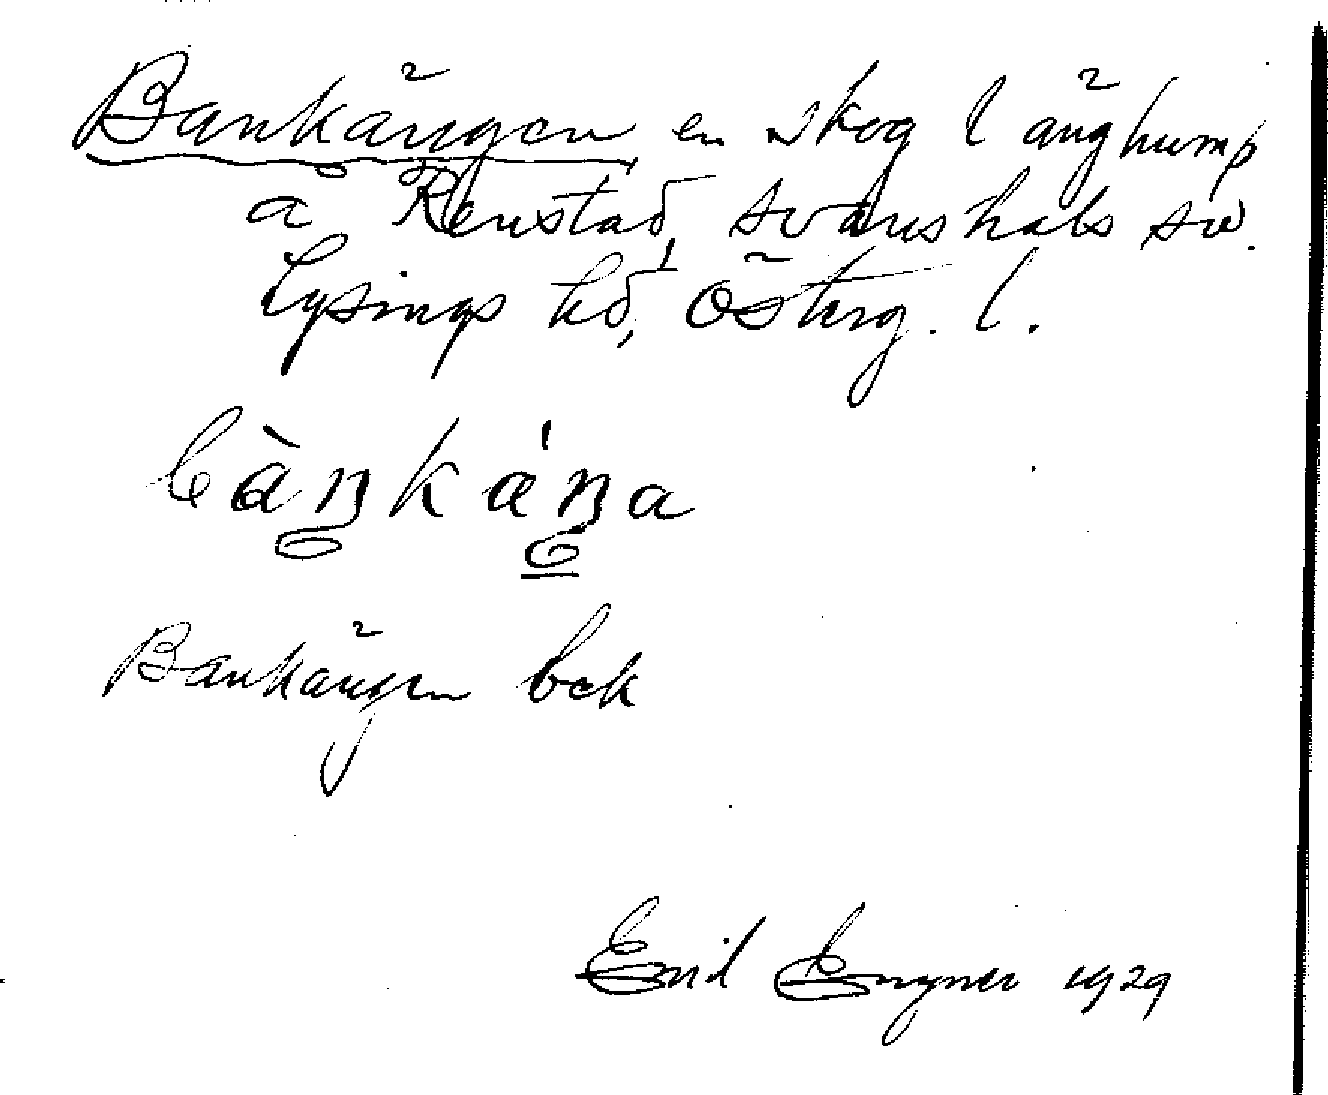 Bankängen en skog l änghump
å Renstad, Svanshals sn.
Lysings hd, Österg. l.
bàŋkáŋa
Bankängen bek
Enid Engner 1929